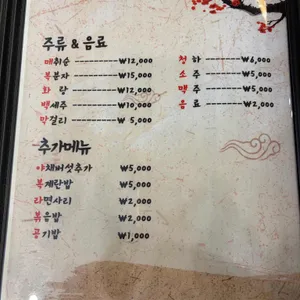 주류 & 음료
매취순 ----------₩12,000
복분자 ----------₩15,000
화 랑 ----------₩12,000
백세주 ----------₩10,000
막걸리 ----------₩ 5,000
청 하 ----------₩6,000
소 주 ----------₩5,000
맥 주 ----------₩5,000
음 료 ----------₩2,000
추가메뉴
야채버섯추가 ₩5,000
복계란밥 ₩5,000
라면사리 ₩2,000
볶음밥 ₩2,000
공기밥 ₩1,000